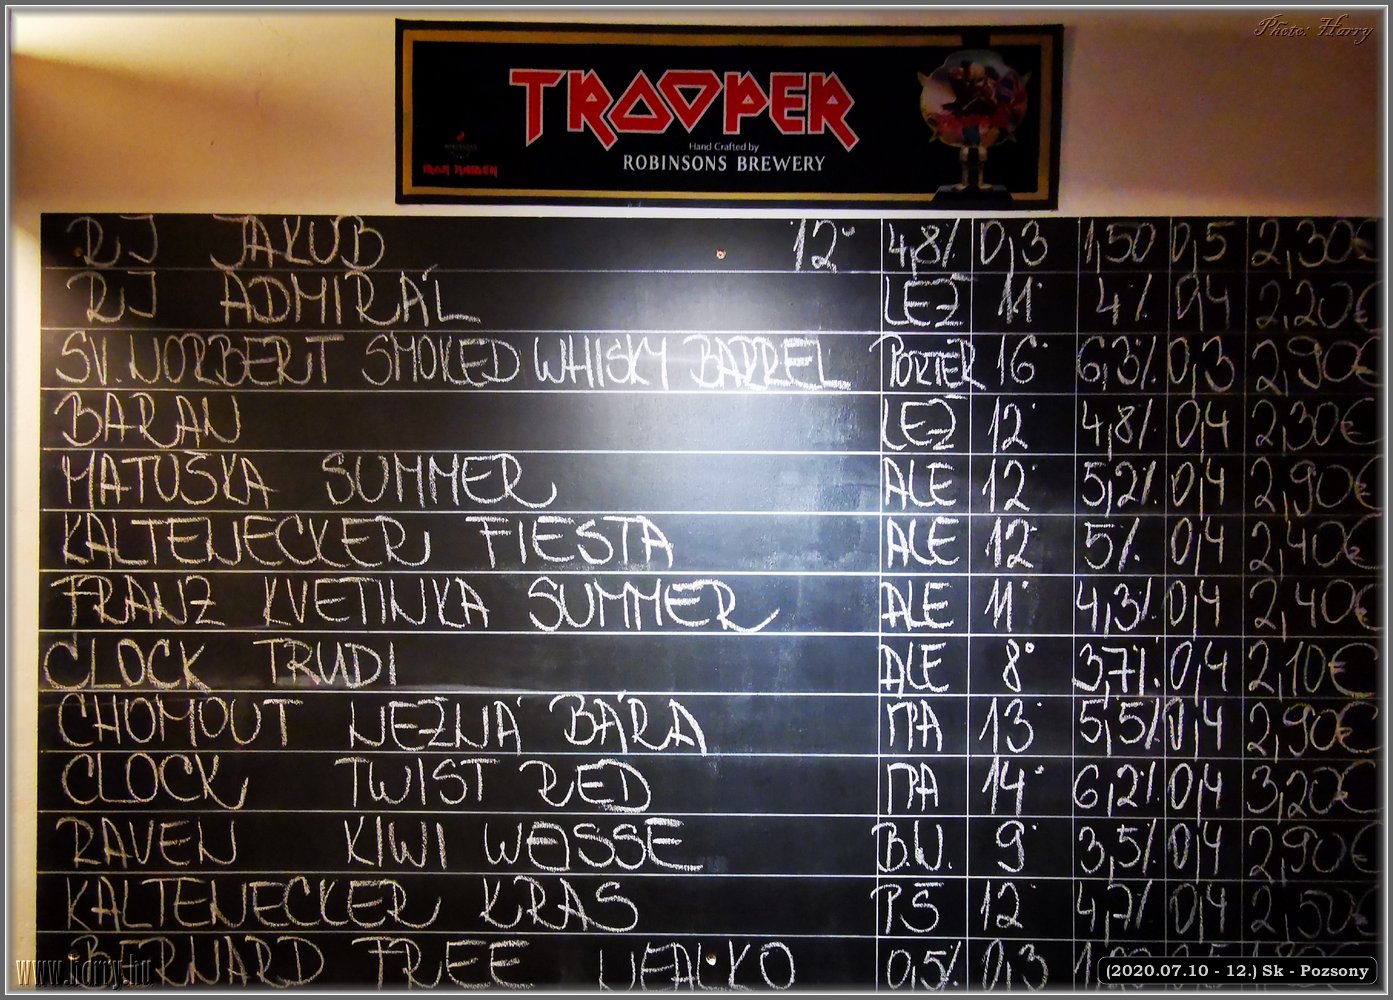 Photo: Harry
TROOPER
Hand Crafted by
ROBINSONS BREWERY
IRON MAIDEN
RJ JAKUB 12° 4,8% 0,3 1,50 0,5 2,30€
RJ ADMIRÁL LEŽ 11° 4% 0,4 2,20€
SV. NORBERT SMOKED WHISKY BARREL PORTER 16° 6,3% 0,3 2,90€
BARAN LEŽ 12° 4,8% 0,4 2,30€
MATUŠKA SUMMER ALE 12° 5,2% 0,4 2,90€
KALTENECKER FIESTA ALE 12° 5% 0,4 2,40€
FRANZ KVETINKA SUMMER ALE 11° 4,3% 0,4 2,40€
CLOCK TRUDI ALE 8° 3,7% 0,4 2,10€
CHOMOUT NEŽNÁ BÁRA IPA 13° 5,5% 0,4 2,90€
CLOCK TWIST RED IPA 14° 6,2% 0,4 3,20€
RAVEN KIWI WEISSE B.W. 9° 3,5% 0,4 2,90€
KALTENECKER KRAS PŠ 12° 4,7% 0,4 2,50€
BERNARD FREE NEALKO 0,5% 0,3
www.harry.hu
(2020.07.10 - 12.) Sk - Pozsony